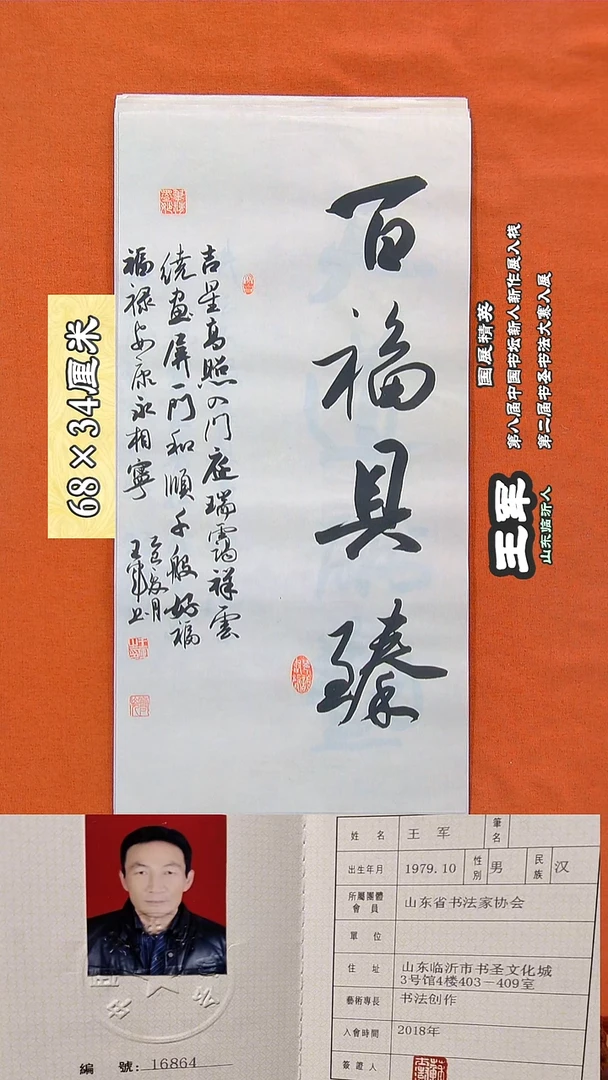 百福具臻
吉星高照入门庭瑞霭祥雲
绕画屏一门和順千般好福
福禄安康永相寧
王军书
68×34厘米
国展精英
第八届中国书坛新人新作展入栈
第二届书圣书法大赛入展
王军
山东临沂人
編 號: 16864
姓 名 王 军 筆名
出生年月 1979.10 性别 男 民族 汉
所屬團體會員 山东省书法家协会
單 位
住 址 山东临沂市书圣文化城
3号馆4楼403－409室
藝術專長 书法创作
入會時間 2018年
簽證人